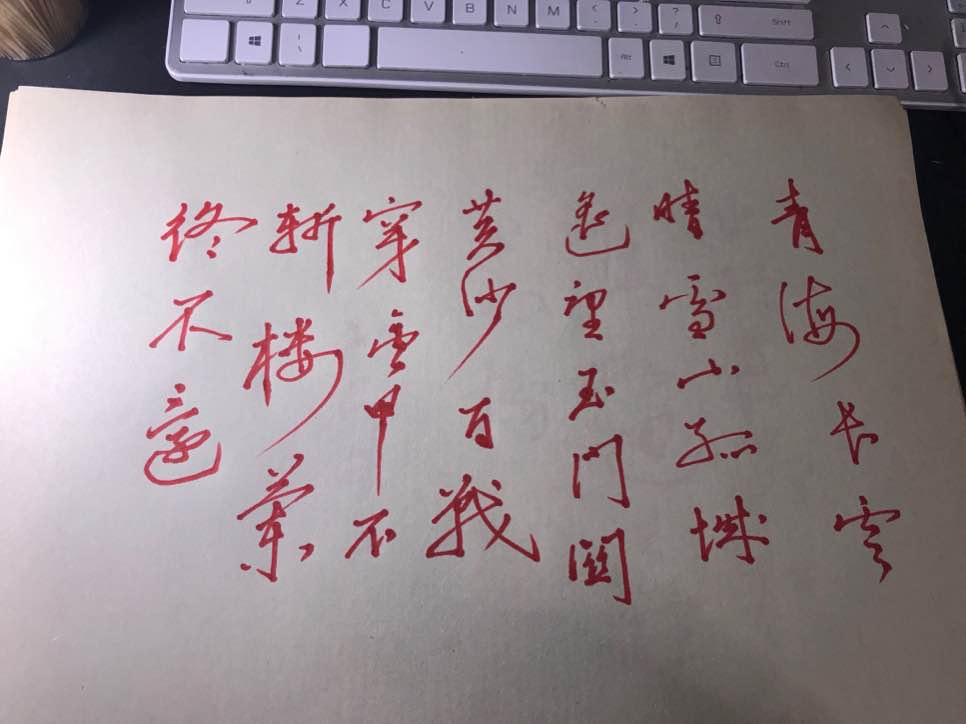 Z X C V B N M < > ? Shift
Alt Ctrl
青海长云
晴雪山孤城
遥望玉门關
黄沙百战
穿金甲不
斩楼蘭
终不還